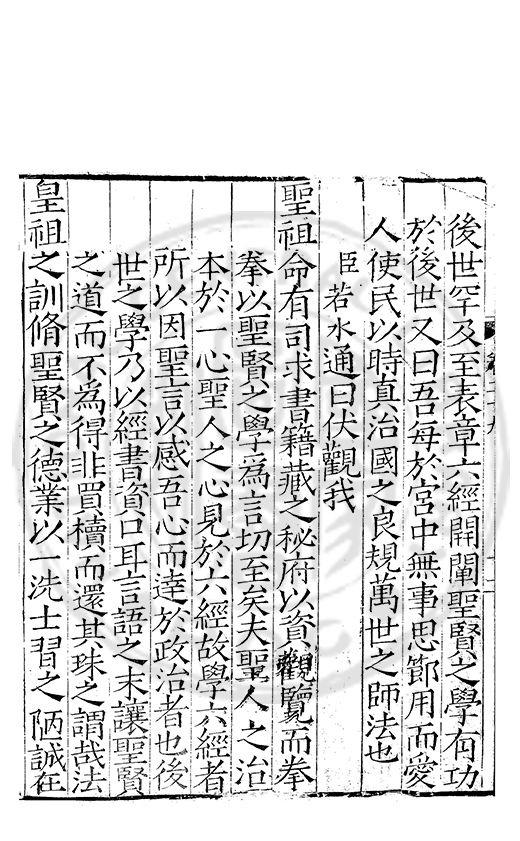 後世罕及至表章六經開闡聖賢之學有功
於後世又曰吾每於宮中無事思節用而愛
人使民以時真治國之良規萬世之師法也
臣若水通曰伏觀我
聖祖命有司求書籍藏之秘府以資觀覽而拳
拳以聖賢之學為言切至矣夫聖人之治
本於一心聖人之心見於六經故學六經者
所以因聖言以感吾心而達於政治者也後
世之學乃以經書資口耳言語之末讓聖賢
之道而不為得非買櫝而還其珠之謂哉法
皇祖之訓脩聖賢之德業以一洗士習之陋誠在